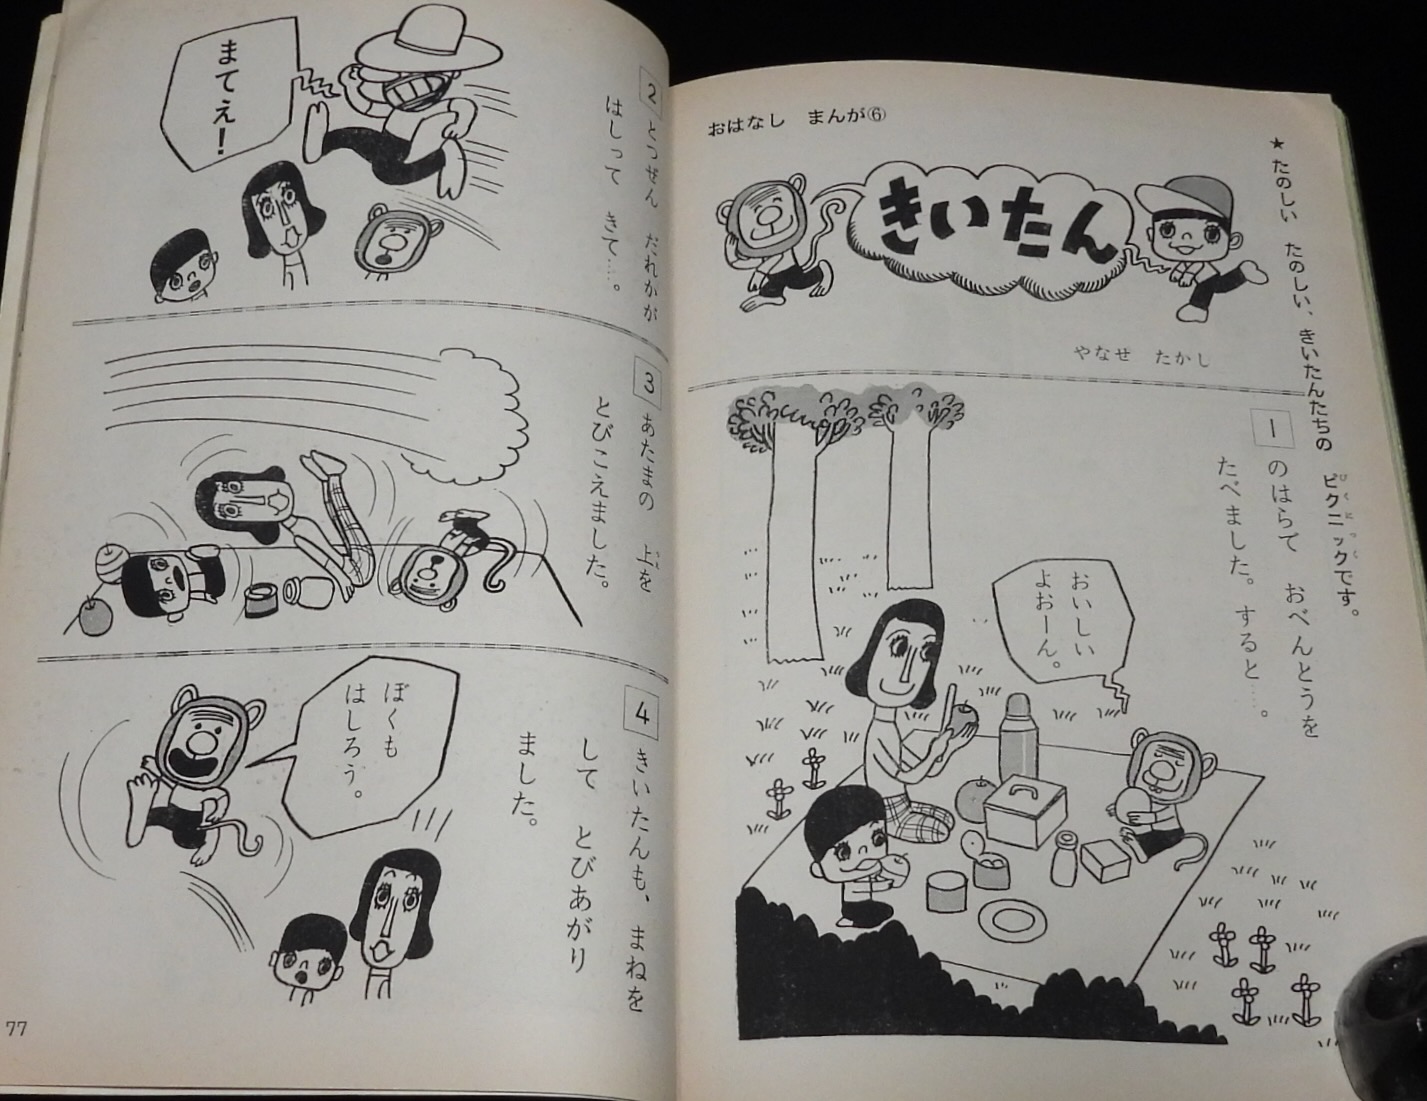 おはなし　まんが⑥
★たのしい　たのしい、きいたんたちの
ピクニックです。
ぴくにっく
きいたん
やなせ　たかし
1
のはらて　おべんとうを
たべました。すると…。
おいしい
よおーん。
2
とつぜん　だれかが
はしって　きて…。
まてえ！
3
あたまの　上を
うえ
とびこえました。
4
きいたんも、まねを
して　とびあがり
ました。
ぼくも
はしろう。
77